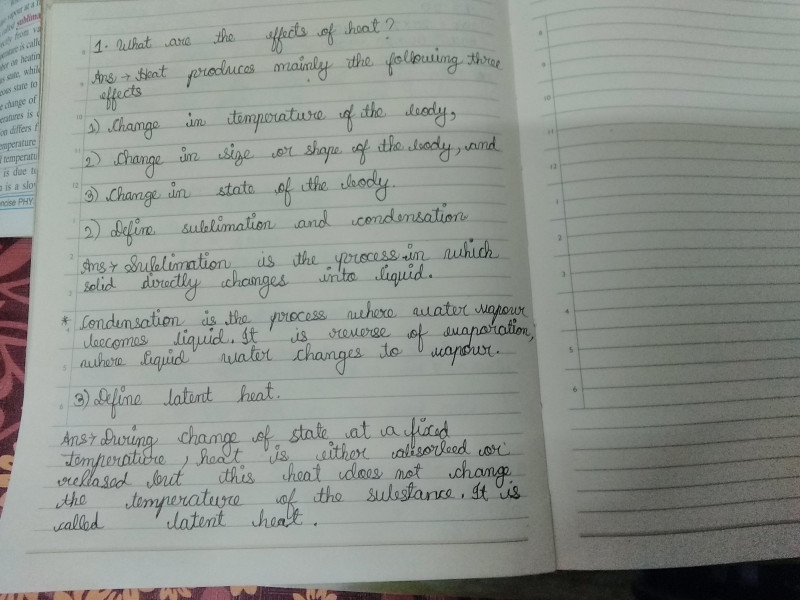 1. What are the effects of heat?
Ans → Heat produces mainly the following three
effects
1) Change in temperature of the body,
2) Change in size or shape of the body, and
3) Change in state of the body.
2) Define sublimation and condensation
Ans → Sublimation is the process in which
solid directly changes into liquid.
* Condensation is the process where water vapour
becomes liquid. It is reverse of evaporation,
where liquid water changes to vapour.
3) Define latent heat.
Ans → During change of state at a fixed
temperature, heat is either absorbed or
released but this heat does not change
the temperature of the substance. It is
called latent heat.